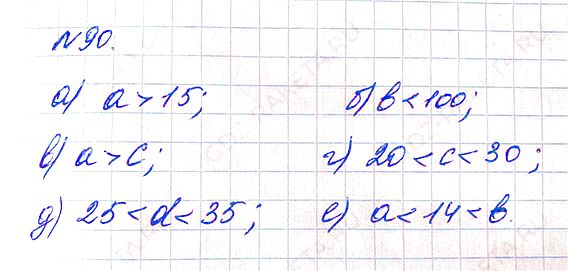 №90.
а) a > 15; б) b < 100;
в) a > c; г) 20 < c < 30;
д) 25 < d < 35; е) a < 14 < b.